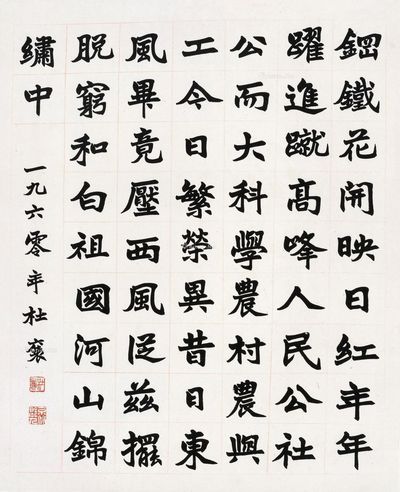 鋼鐵花開映日红年年
躍進蹴高峰人民公社
公而大科學農村農與
工今日繁榮異昔日東
風畢竟壓西風从兹擺
脫窮和白祖國河山錦
繡中
一九六零年杜